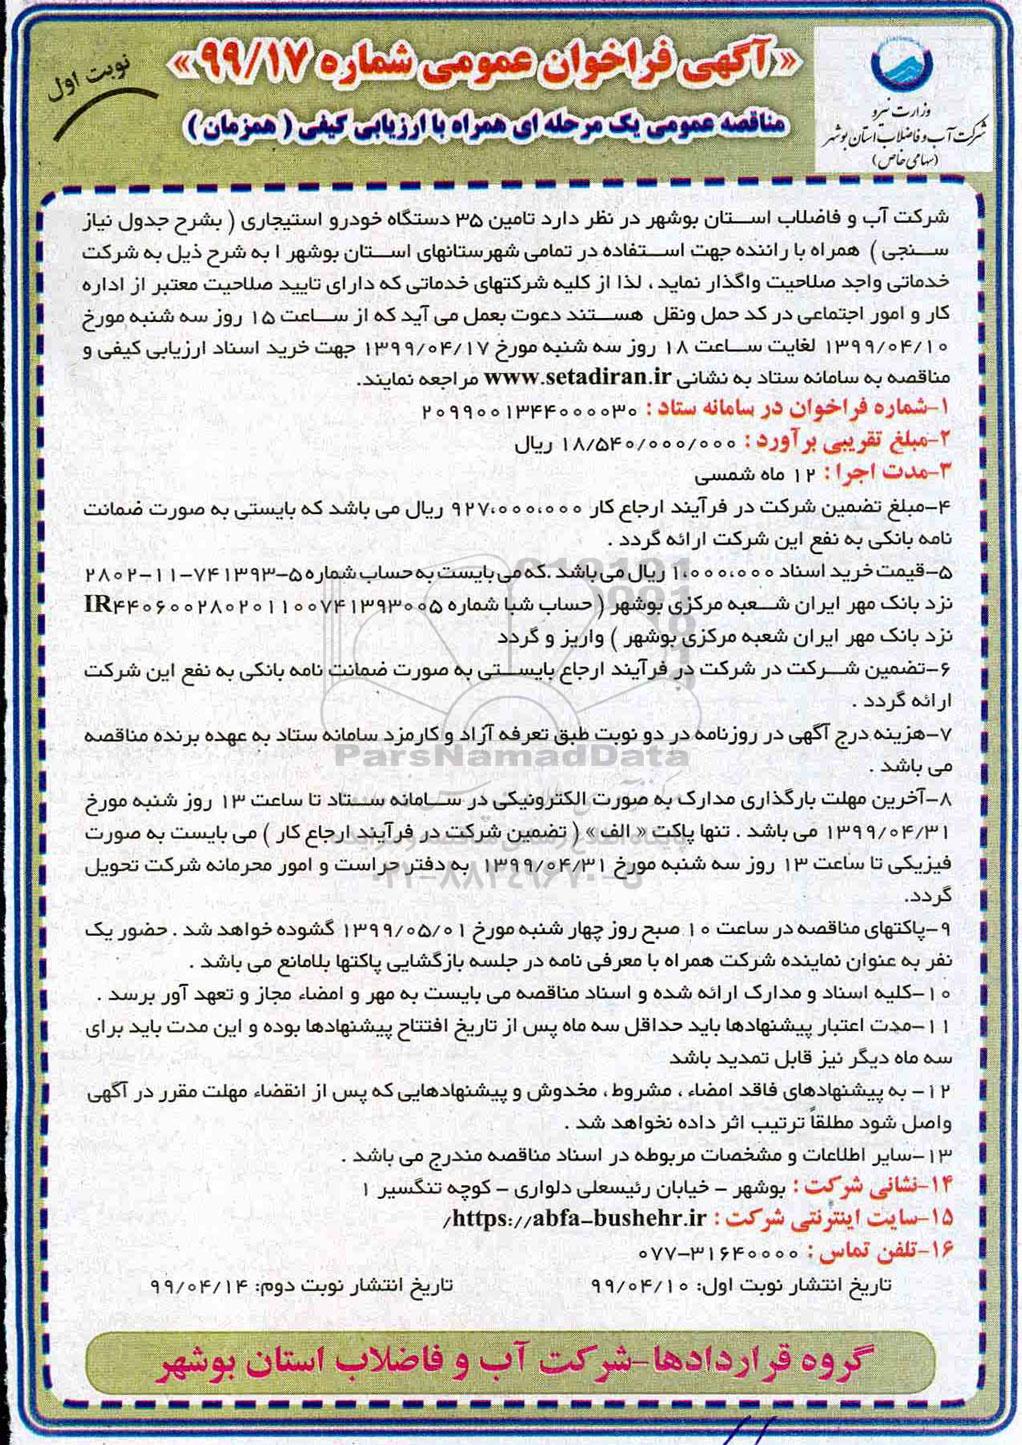 نوبت اول
«آگهی فراخوان عمومی شماره ۹۹/۱۷»
مناقصه عمومی یک مرحله ای همراه با ارزیابی کیفی ( همزمان )
وزارت نیرو
شرکت آب و فاضلاب استان بوشهر
(سهامی خاص)
شرکت آب و فاضلاب استان بوشهر در نظر دارد تامین ۳۵ دستگاه خودرو استیجاری ( بشرح جدول نیاز
سنجی ) همراه با راننده جهت استفاده در تمامی شهرستانهای استان بوشهر ا به شرح ذیل به شرکت
خدماتی واجد صلاحیت واگذار نماید ، لذا از کلیه شرکتهای خدماتی که دارای تایید صلاحیت معتبر از اداره
کار و امور اجتماعی در کد حمل ونقل هستند دعوت بعمل می آید که از ساعت ۱۵ روز سه شنبه مورخ
۱۳۹۹/۰۴/۱۰ لغایت ساعت ۱۸ روز سه شنبه مورخ ۱۳۹۹/۰۴/۱۷ جهت خرید اسناد ارزیابی کیفی و
مناقصه به سامانه ستاد به نشانی www.setadiran.ir مراجعه نمایند.
۱-شماره فراخوان در سامانه ستاد : ۲۰۹۹۰۰۱۳۴۴۰۰۰۰۳۰
۲-مبلغ تقریبی برآورد : ۱۸/۵۴۰/۰۰۰/۰۰۰ ریال
۳-مدت اجرا : ۱۲ ماه شمسی
۴-مبلغ تضمین شرکت در فرآیند ارجاع کار ۹۲۷،۰۰۰،۰۰۰ ریال می باشد که بایستی به صورت ضمانت
نامه بانکی به نفع این شرکت ارائه گردد .
۵-قیمت خرید اسناد ۱،۰۰۰،۰۰۰ ریال می باشد .که می بایست به حساب شماره ۵-۷۴۱۳۹۳-۱۱-۲۸۰۲
نزد بانک مهر ایران شعبه مرکزی بوشهر ( حساب شبا شماره IR۴۴۰۶۰۰۲۸۰۲۰۱۱۰۰۷۴۱۳۹۳۰۰۵
نزد بانک مهر ایران شعبه مرکزی بوشهر ) واریز و گردد
۶-تضمین شرکت در شرکت در فرآیند ارجاع بایستی به صورت ضمانت نامه بانکی به نفع این شرکت
ارائه گردد .
۷-هزینه درج آگهی در روزنامه در دو نوبت طبق تعرفه آزاد و کارمزد سامانه ستاد به عهده برنده مناقصه
ParsNamadData
می باشد .
۸-آخرین مهلت بارگذاری مدارک به صورت الکترونیکی در سامانه ستاد تا ساعت ۱۳ روز شنبه مورخ
۱۳۹۹/۰۴/۳۱ می باشد . تنها پاکت « الف » ( تضمین شرکت در فرآیند ارجاع کار ) می بایست به صورت
فیزیکی تا ساعت ۱۳ روز سه شنبه مورخ ۱۳۹۹/۰۴/۳۱ به دفتر حراست و امور محرمانه شرکت تحویل
گردد.
۹-پاکتهای مناقصه در ساعت ۱۰ صبح روز چهار شنبه مورخ ۱۳۹۹/۰۵/۰۱ گشوده خواهد شد . حضور یک
نفر به عنوان نماینده شرکت همراه با معرفی نامه در جلسه بازگشایی پاکتها بلامانع می باشد .
۱۰-کلیه اسناد و مدارک ارائه شده و اسناد مناقصه می بایست به مهر و امضاء مجاز و تعهد آور برسد .
۱۱-مدت اعتبار پیشنهادها باید حداقل سه ماه پس از تاریخ افتتاح پیشنهادها بوده و این مدت باید برای
سه ماه دیگر نیز قابل تمدید باشد
۱۲- به پیشنهادهای فاقد امضاء ، مشروط ، مخدوش و پیشنهادهایی که پس از انقضاء مهلت مقرر در آگهی
واصل شود مطلقاً ترتیب اثر داده نخواهد شد .
۱۳-سایر اطلاعات و مشخصات مربوطه در اسناد مناقصه مندرج می باشد .
۱۴-نشانی شرکت : بوشهر - خیابان رئیسعلی دلواری - کوچه تنگسیر ۱
۱۵-سایت اینترنتی شرکت : https://abfa-bushehr.ir/
۱۶-تلفن تماس : ۰۷۷-۳۱۶۴۰۰۰۰
تاریخ انتشار نوبت اول: ۹۹/۰۴/۱۰ تاریخ انتشار نوبت دوم: ۹۹/۰۴/۱۴
گروه قراردادها-شرکت آب و فاضلاب استان بوشهر